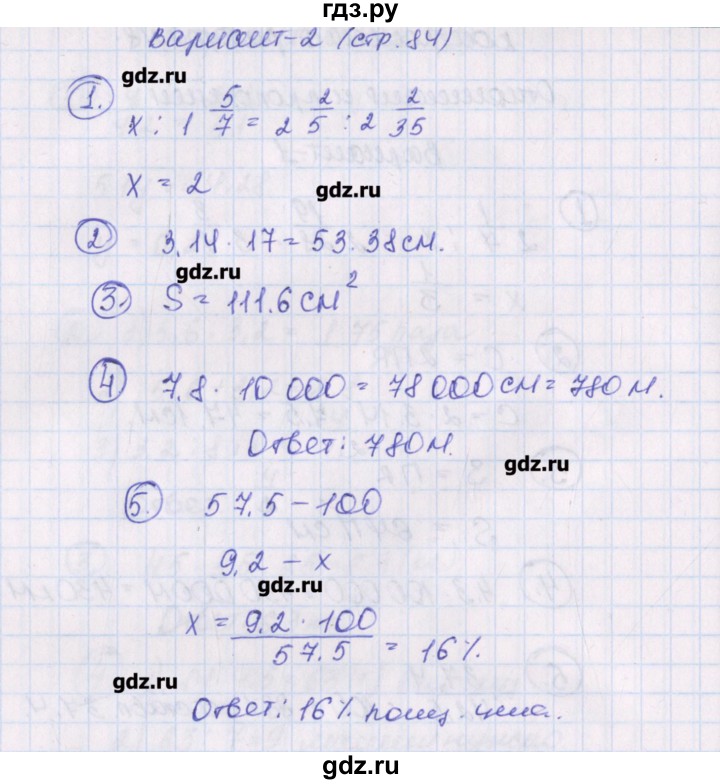 гдз.ру
Вариант-2 (стр.84)
gdz.ru
1. x : 1 5/7 = 2 2/5 : 2 2/35
x = 2
gdz.ru
2) 3,14 · 17 = 53.38 см.
gdz.ru
3) S = 111.6 см²
4) 7,8 · 10 000 = 78 000 см = 780 м.
Ответ: 780 м.
gdz.ru
5. 57,5 – 100
9,2 – x
gdz.ru
x = 9,2 · 100 / 57.5 = 16%.
gdz.ru
Ответ: 16%
гдз.ру